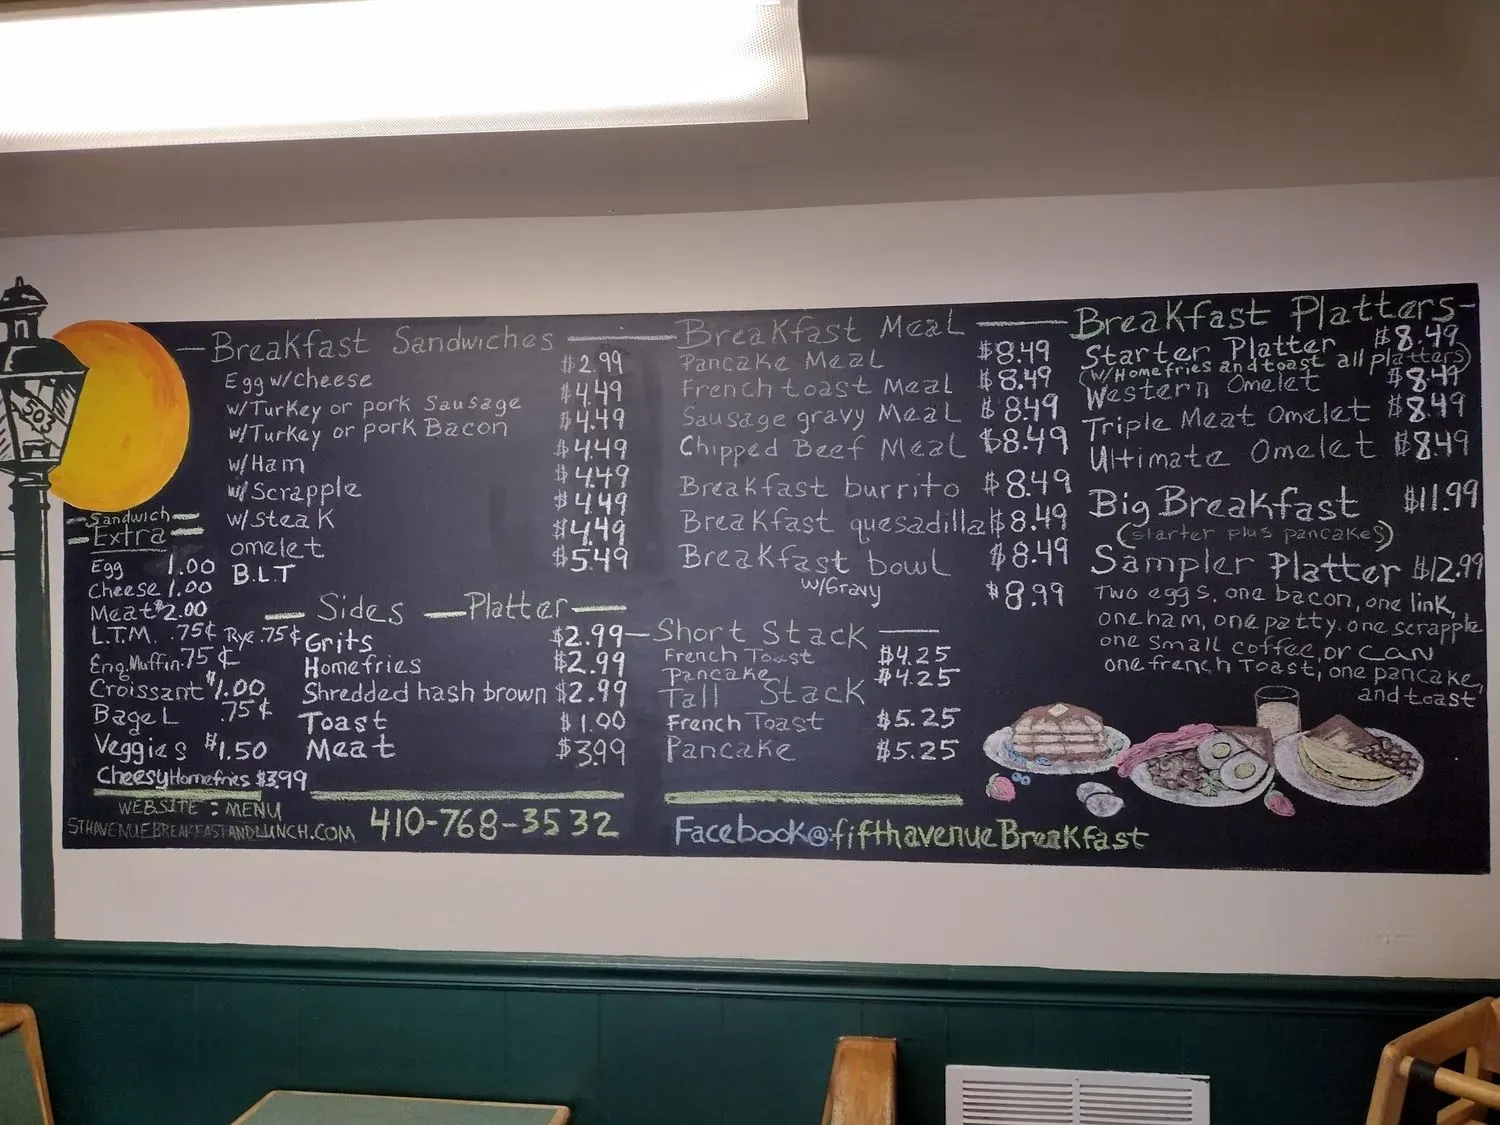 Breakfast Sandwiches
Egg w/cheese $2.99
w/Turkey or pork Sausage $4.49
w/Turkey or pork Bacon $4.49
w/Ham $4.49
w/Scrapple $4.49
w/steak $4.49
omelet $4.49
B.L.T $5.49
Sandwich
Extra
Egg 1.00
Cheese 1.00
Meat $2.00
L.T.M. .75¢ Rye .75¢
Eng.Muffin .75¢
Croissant $1.00
Bagel .75¢
Veggies $1.50
Cheesy Homefries $3.99
WEBSITE : MENU
5THAVENUEBREAKFASTANDLUNCH.COM
Sides — Platter
Grits $2.99
Homefries $2.99
Shredded hash brown $2.99
Toast $1.00
Meat $3.99
410-768-3532
Breakfast Meal
Pancake Meal $8.49
French toast Meal $8.49
Sausage gravy Meal $8.49
Chipped Beef Meal $8.49
Breakfast burrito $8.49
Breakfast quesadilla $8.49
Breakfast bowl $8.49
w/Gravy $8.99
Short Stack
French Toast $4.25
Pancake $4.25
Tall Stack
French Toast $5.25
Pancake $5.25
Facebook@fifthavenueBreakfast
Breakfast Platters
Starter Platter $8.49
(w/Homefries and toast all platters)
Western Omelet $8.49
Triple Meat Omelet $8.49
Ultimate Omelet $8.49
Big Breakfast $11.99
(starter plus pancakes)
Sampler Platter $12.99
Two eggs, one bacon, one link,
one ham, one patty. one scrapple
one small coffee, or CAN
one french Toast, one pancake,
and toast